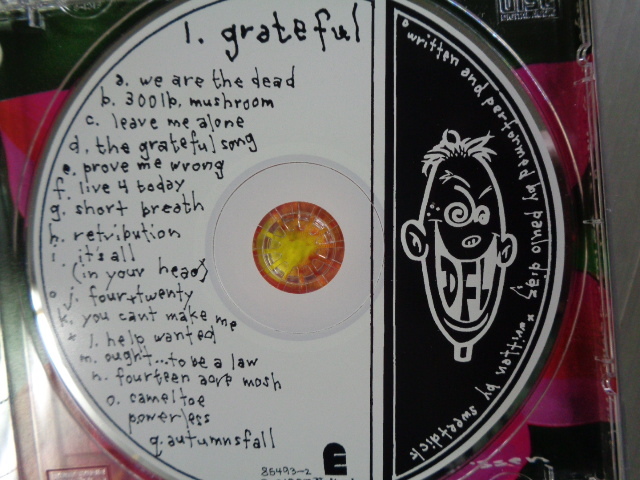 1. grateful
a. we are the dead
b. 300lb. mushroom
c. leave me alone
d. the grateful song
e. prove me wrong
f. live 4 today
g. short breath
h. retribution
i. it's all
(in your head)
o j. four+twenty
k. you cant make me
* l. help wanted
m. ought...to be a law
n. fourteen aorp mosh
o. cameltoe
powerless
q. autumnsfall
86493-2
E
° written and performed by paulo diaz
* written by sweetdick
DFL